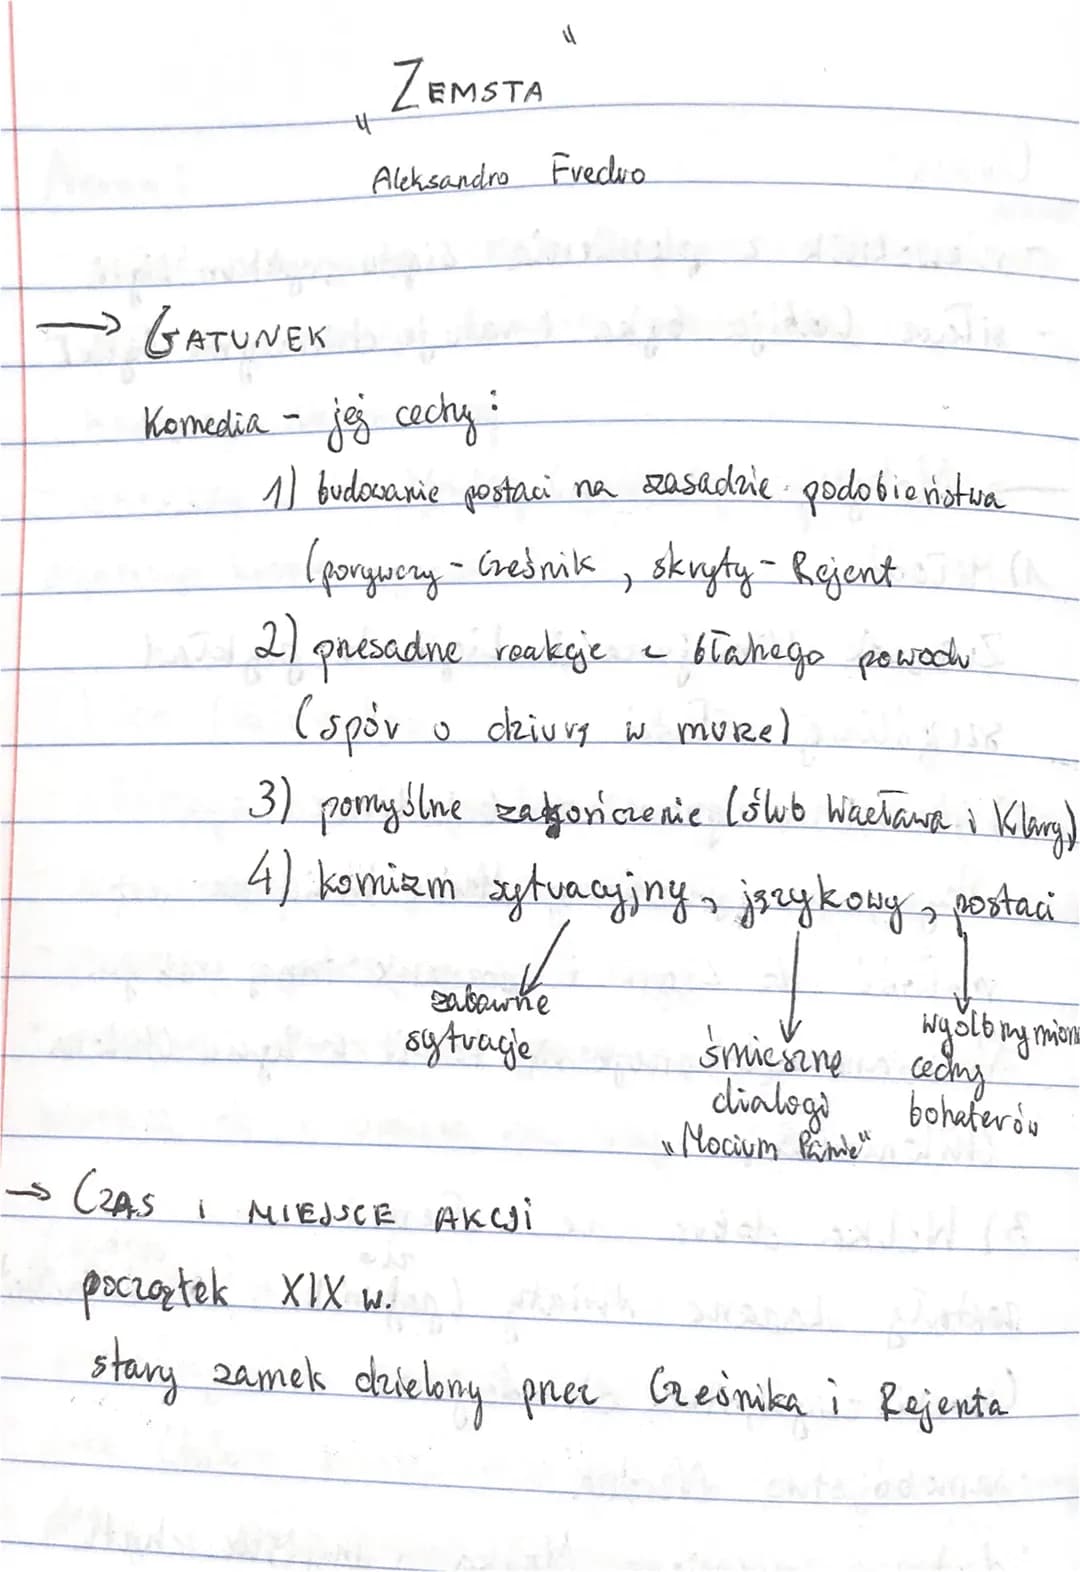 „ZEMSTA"
Aleksandro Fredro
→ GATUNEK
Komedia - jej cechy:
1) budowanie postaci na zasadzie podobieństwa
(porywczy - Cześnik, skryty - Rejent
2) przesadne reakcje z błahego powodu
(spór o dziurę w murze)
3) pomyślne zakończenie (ślub Wacława i Klary)
4) komizm sytuacyjny, językowy, postaci
zabawne
sytuacje
śmieszne
dialogi
„Mocium Panie"
cechy
bohaterów
→ CZAS I MIEJSCE AKCJI
początek XIX w.
stary zamek dzielony przez Cześnika i Rejenta